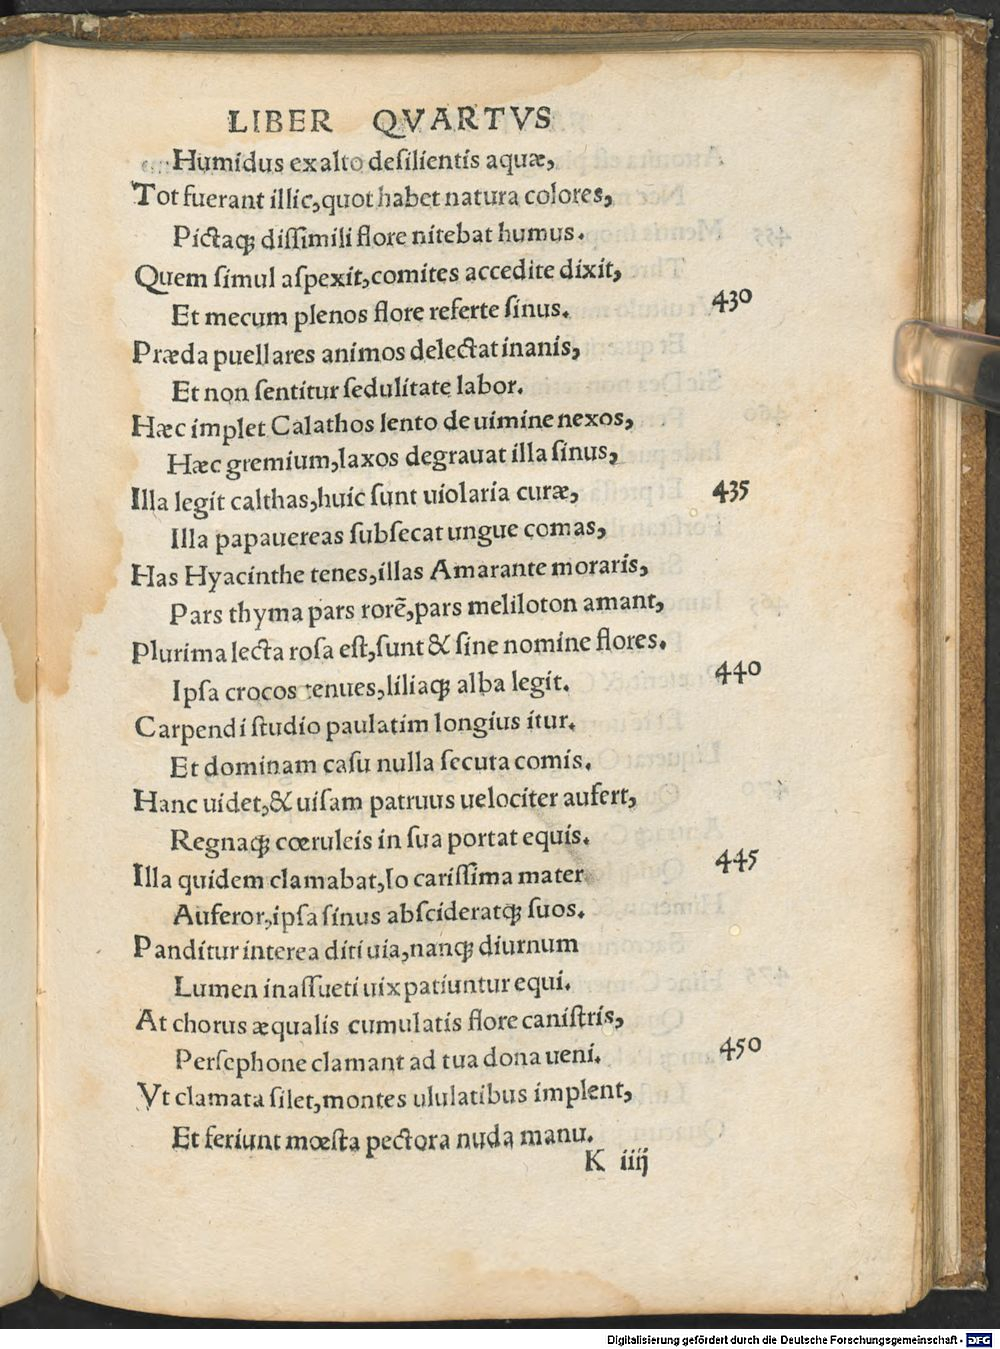 LIBER QVARTVS
Humidus ex alto desilientis aquæ,
Tot fuerant illic, quot habet natura colores,
Pictaqꝫ dissimili flore nitebat humus.
Quem simul aspexit, comites accedite dixit,
Et mecum plenos flore referte sinus. 430
Præda puellares animos delectat inanis,
Et non sentitur sedulitate labor.
Hæc implet Calathos lento de uimine nexos,
Hæc gremium, laxos degrauat illa sinus,
Illa legit calthas, huic sunt uiolaria curæ, 435
Illa papauereas subsecat ungue comas,
Has Hyacinthe tenes, illas Amarante moraris,
Pars thyma pars rorē, pars meliloton amant,
Plurima lecta rosa est, sunt & sine nomine flores.
Ipsa crocos tenues, liliaqꝫ alba legit. 440
Carpendi studio paulatim longius itur.
Et dominam casu nulla secuta comis.
Hanc uidet, & uisam patruus uelociter aufert,
Regnaqꝫ cœruleis in sua portat equis.
Illa quidem clamabat, Io carissima mater 445
Auferor, ipsa sinus abscideratqꝫ suos.
Panditur interea diti uia, nanqꝫ diurnum
Lumen inassueti uix patiuntur equi.
At chorus æqualis cumulatis flore canistris,
Persephone clamant ad tua dona ueni. 450
Vt clamata silet, montes ululatibus implent,
Et feriunt mœsta pectora nuda manu.
K iiij
Digitalisierung gefördert durch die Deutsche Forschungsgemeinschaft - DFG